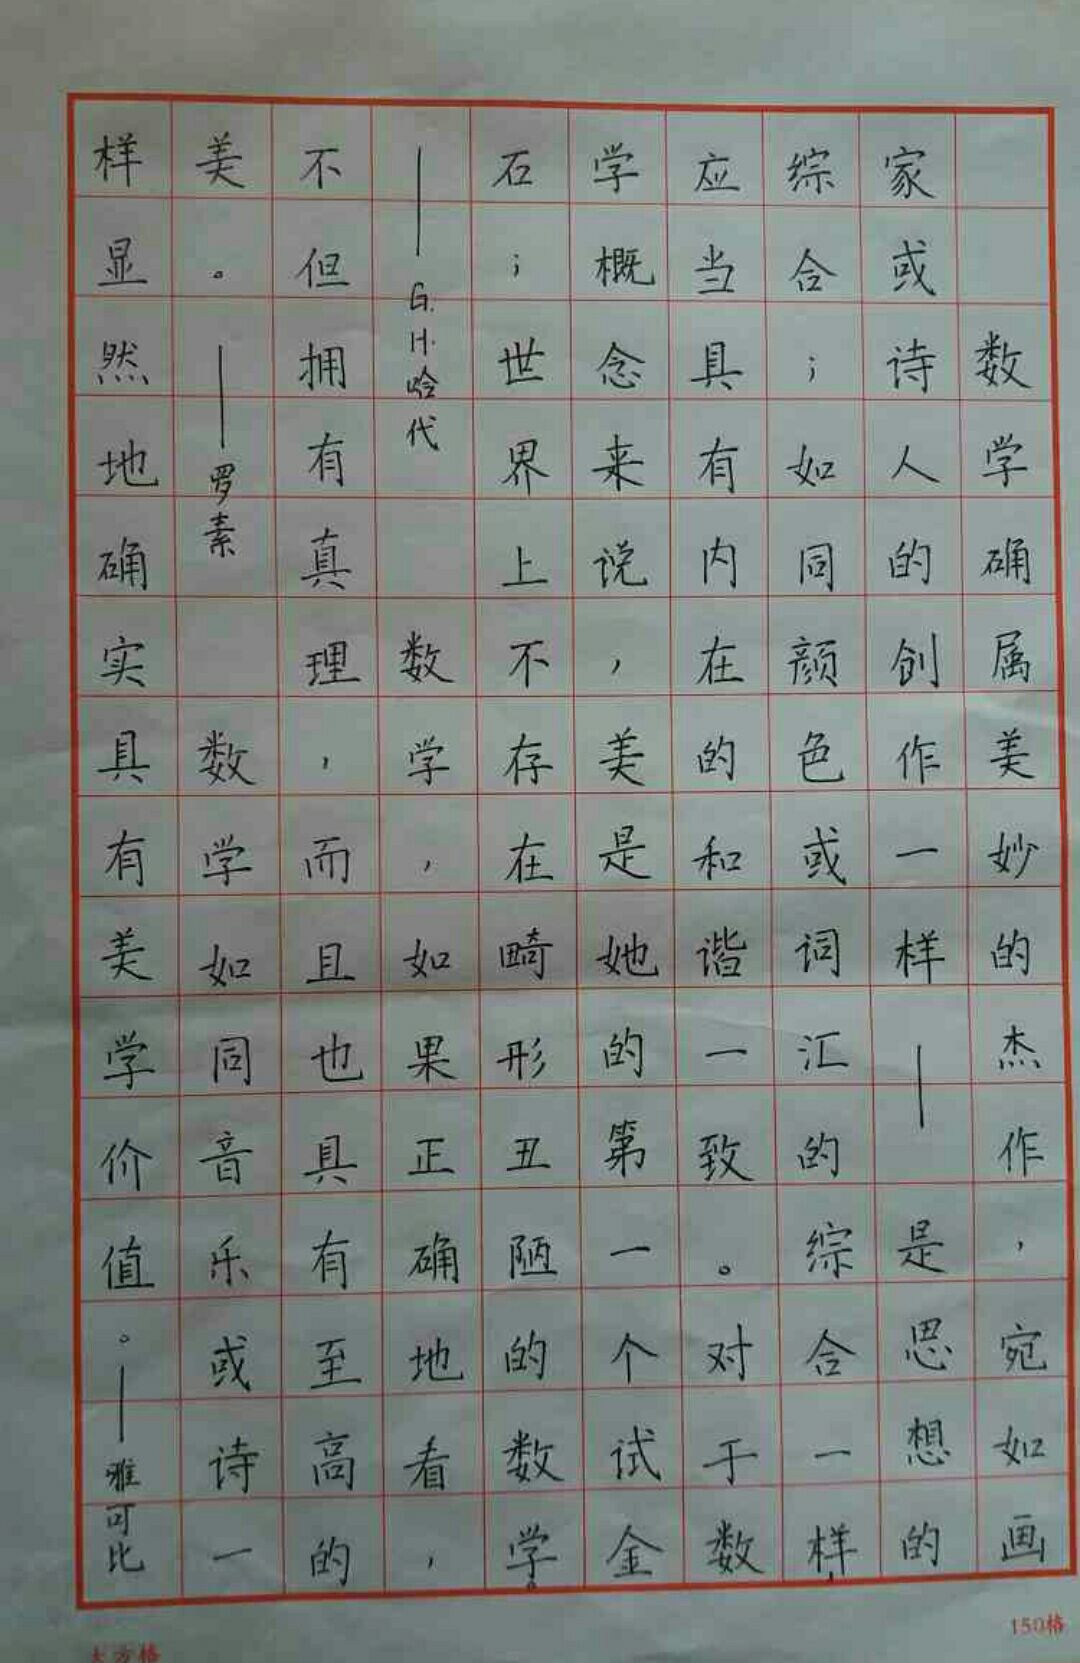 数学确属美妙的杰作，宛如画
家或诗人的创作一样——是思想的
综合；如同颜色或词汇的综合一样，
应当具有内在的和谐一致。对于数
学概念来说，美是她的第一个试金
石；世界上不存在畸形丑陋的数学。
——G.H.哈代
数学，如果正确地看，
不但拥有真理，而且也具有至高的
美。——罗素
数学如同音乐或诗一
样显然地确实具有美学价值。——雅可比
150格
大方格